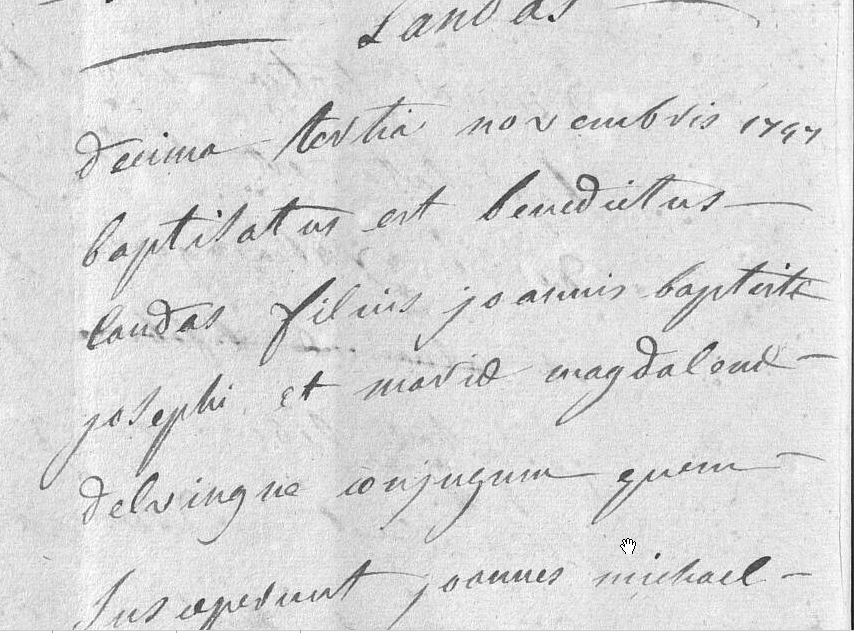 Landas
decima tertia novembris 1797
baptisatus est benedictus
landas filius joannis baptistæ
josephi et mariæ magdalenæ
delvingne conjugum quem
susceperunt joannes michael